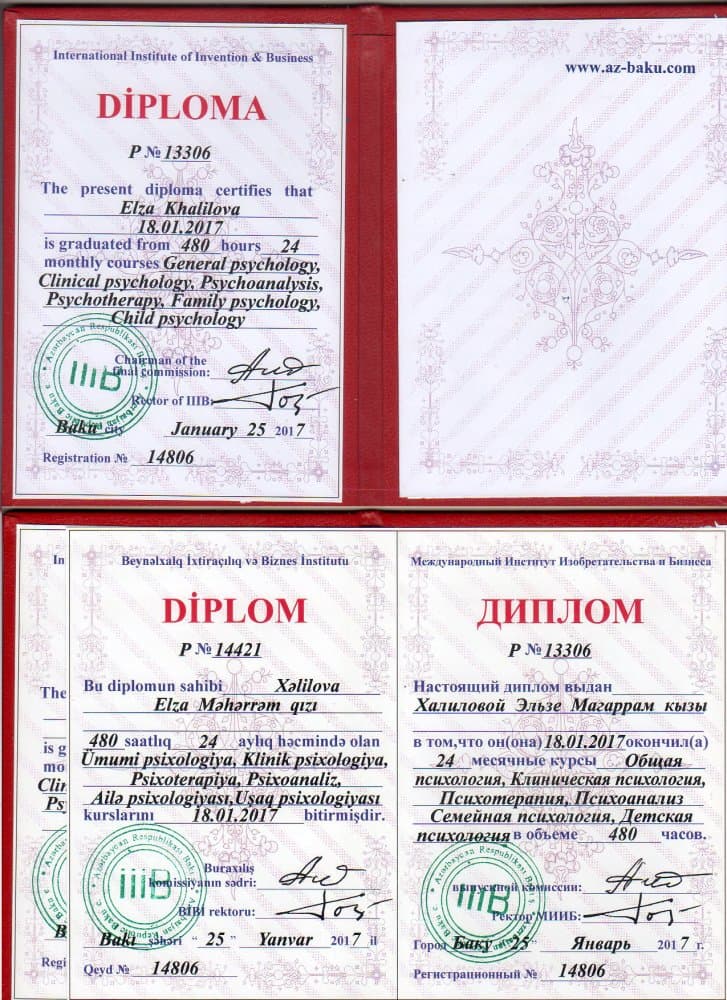 International Institute of Invention & Business
DİPLOMA
P № 13306
The present diploma certifies that
Elza Khalilova
18.01.2017
is graduated from 480 hours 24
monthly courses General psychology,
Clinical psychology, Psychoanalysis,
Psychotherapy, Family psychology,
Child psychology
Chairman of the
final commission:
Rector of IIIB:
IIIB
Baku city January 25 2017
Registration № 14806
www.az-baku.com
In
The
is g
mo
Clin
Ps
B
Regi
Beynəlxalq İxtiraçılıq və Biznes İnstitutu
DİPLOM
P № 14421
Bu diplomun sahibi Xəlilova
Elza Məhərrəm qızı
480 saatlıq 24 aylıq həcmində olan
Ümumi psixologiya, Klinik psixologiya,
Psixoterapiya, Psixoanaliz,
Ailə psixologiyası, Uşaq psixologiyası
kurslarını 18.01.2017 bitirmişdir.
Buraxılış
komissiyanın sədri:
BİBİ rektoru:
IIIB
Bakı şəhəri “ 25 ” Yanvar 2017 il
Qeyd № 14806
Международный Институт Изобретательства и Бизнеса
ДИПЛОМ
P № 13306
Настоящий диплом выдан
Халиловой Эльзе Магаррам кызы
в том,что он(она) 18.01.2017 окончил(а)
24 месячные курсы Общая
психология, Клиническая психология,
Психотерапия, Психоанализ
Семейная психология, Детская
психология в объеме 480 часов.
выпускной комиссии:
Ректор МИИБ:
IIIB
Город Баку 25” Январь 2017 г.
Регистрационный № 14806